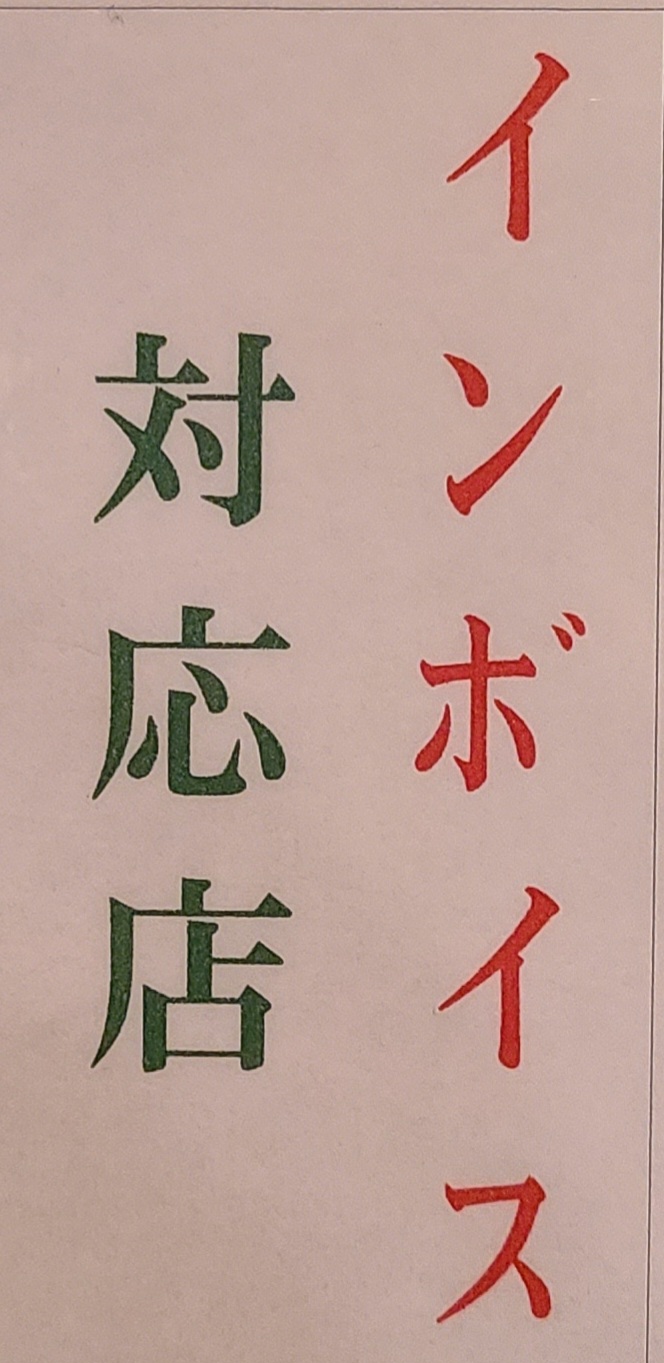 インボイス
対応店